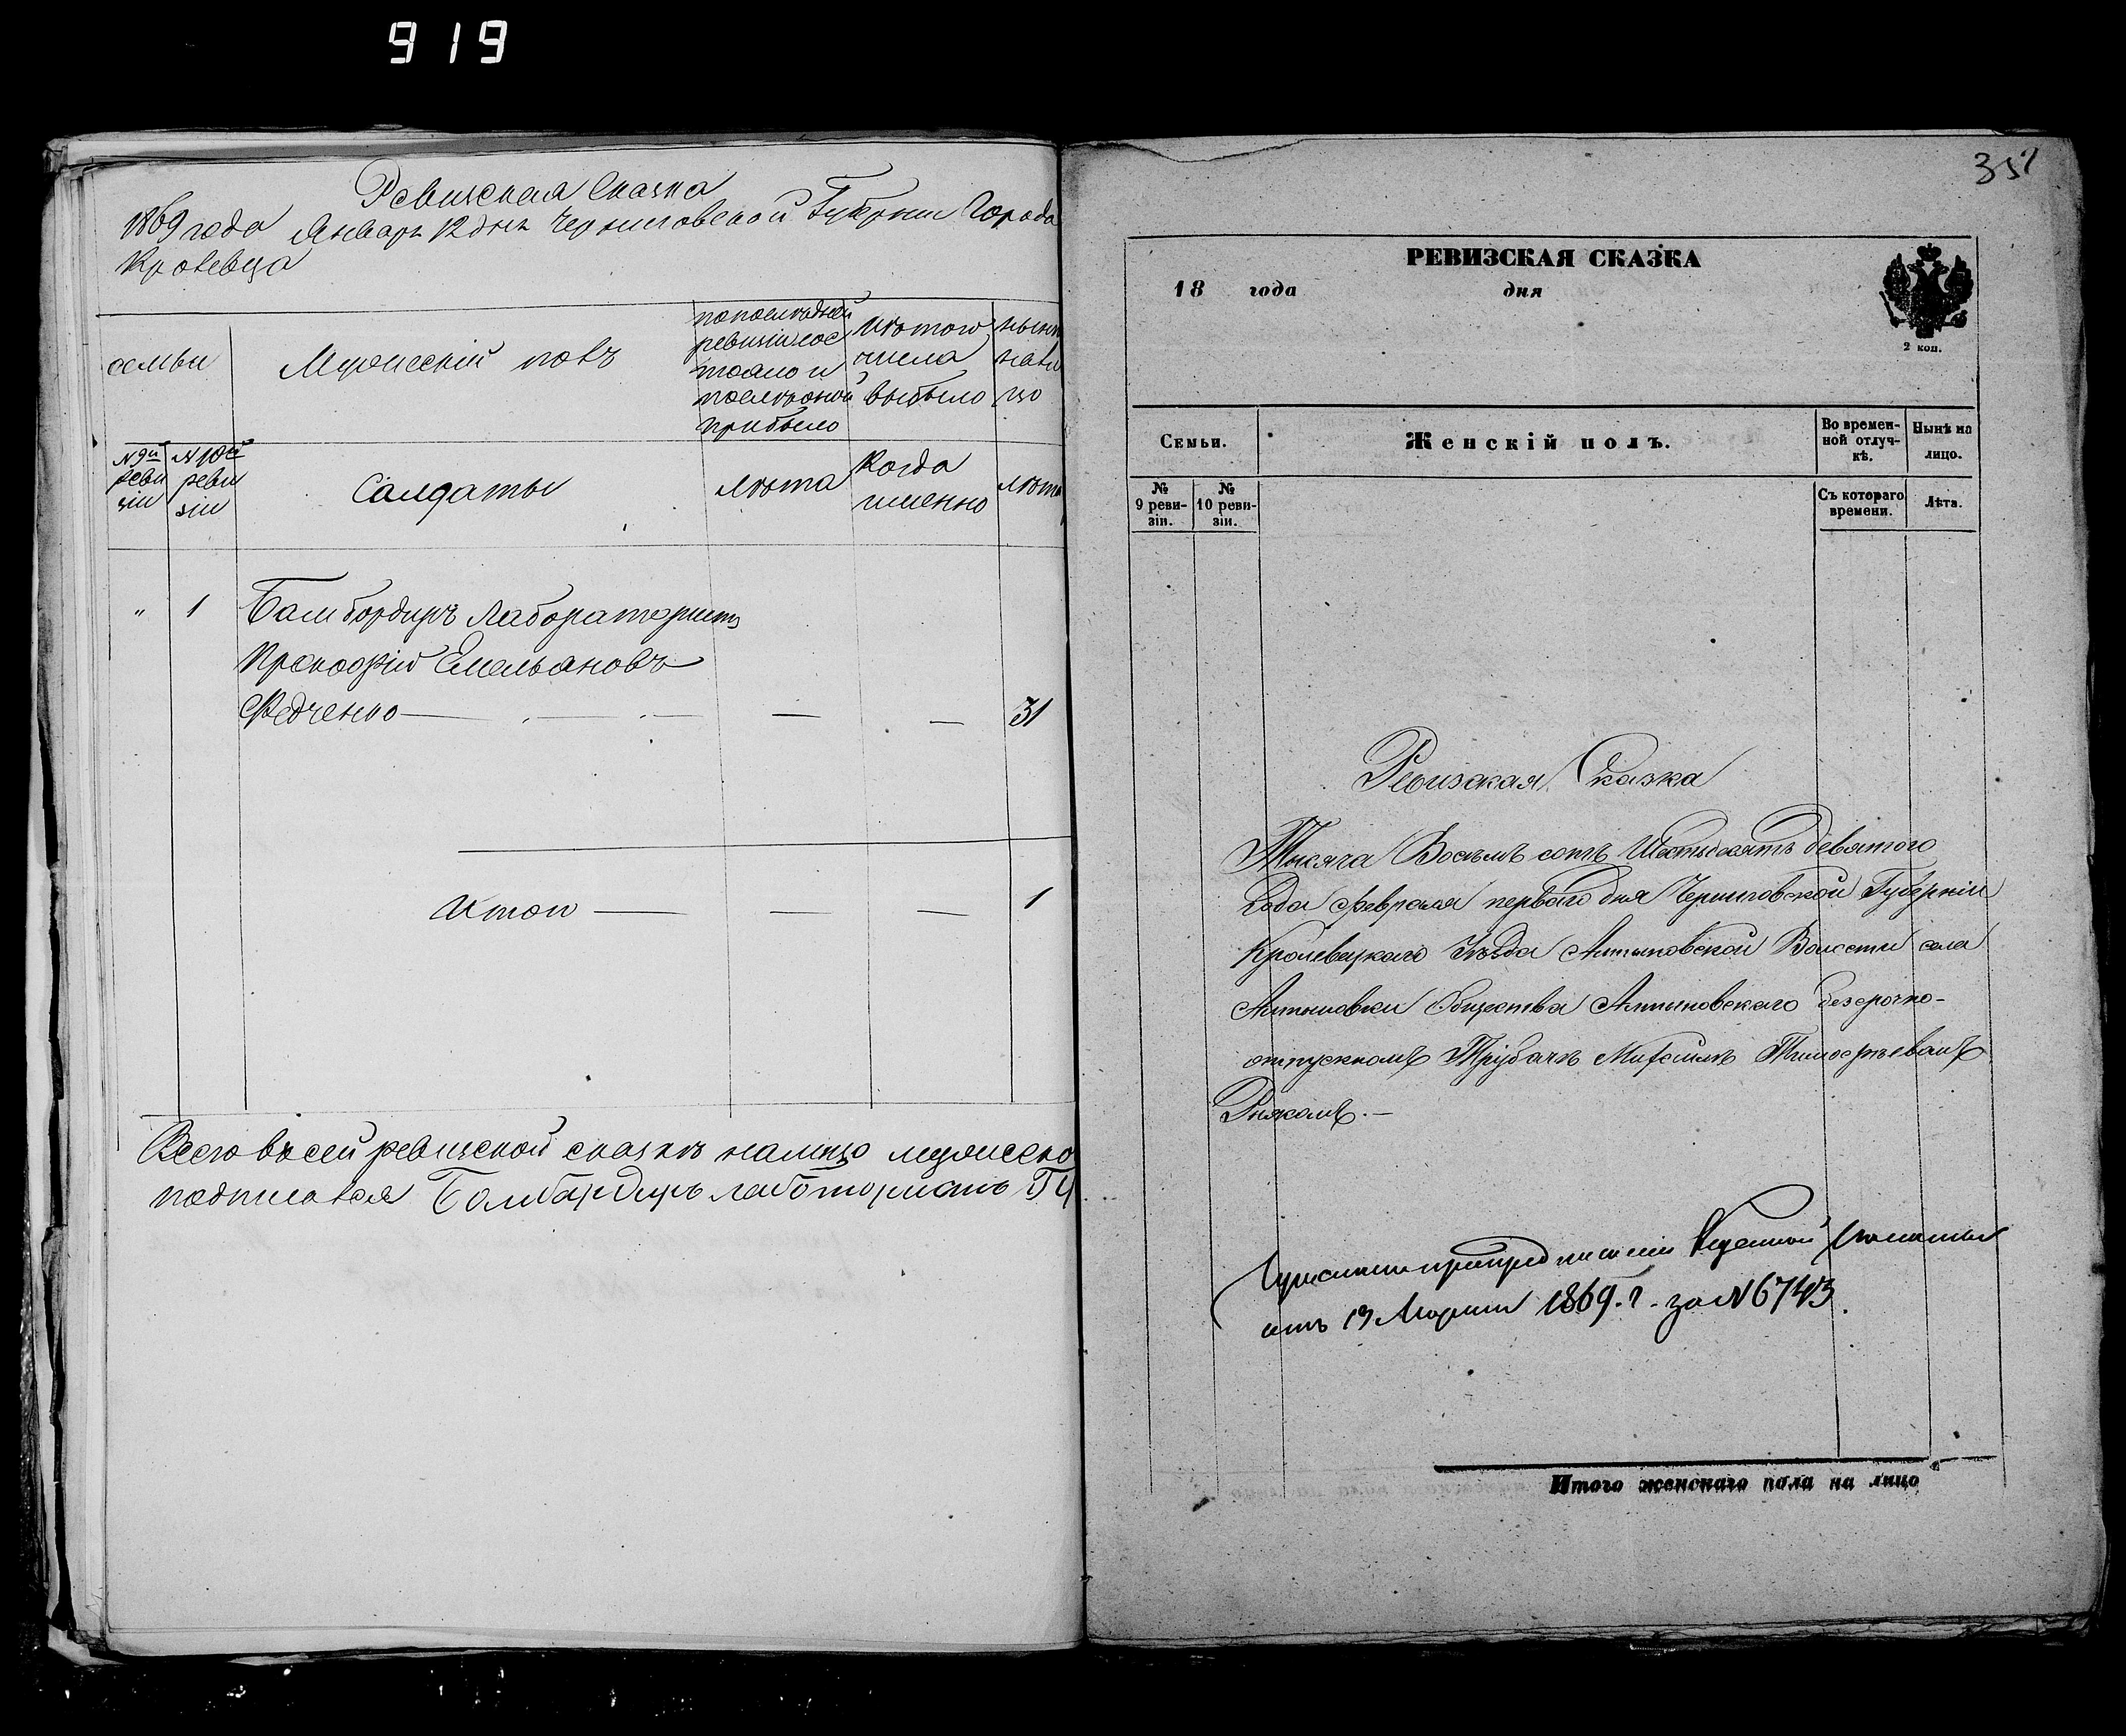 919
Ревизская Сказка
1869 года Январь 12 дня Черниговской Губернии Города
Кролевца
семьи
Мужескій полъ
попоследней
ревизіи сос
тояло и
послѣ оной
прибыло
Изътого
числа
выбыло
нынѣ
нали
цо
№ 9й
реви
зіи
№ 10й
реви
зіи
Солдаты
лѣта
Когда
именно
лѣта
" 1 Бомбордиръ Лаборатористъ
Прокофій Емельяновъ
Федченко — — — 31
Итого — — — 1
Всего въ сей ревиской сказкѣ налицо мужеско
подписался Бомбардиръ лабо
351
РЕВИЗСКАЯ СКАЗКА
18 года дня
2 коп.
Семьи.
Женскій полъ.
Во времен-
ной отлуч-
кѣ.
Нынѣ на
лицо.
№
9 реви-
зіи.
№
10 реви-
зіи.
Съ котораго
времени.
Лѣта.
Ревизская Сказка
Тысяча Восемь сотъ Шестьдесятъ девятого
года Февраля первого дня Черниговской Губерніи
Кролевецкаго Уѣзда Алтыновской Волости села
Алтыновки Общества Алтыновскаго безсрочно-
отпускномъ Трубачѣ Тимофѣевомъ
предписаніи Казенной Палаты
отъ 13 Марта 1869. г. за № 6743.
Итого женскаго пола на лицо